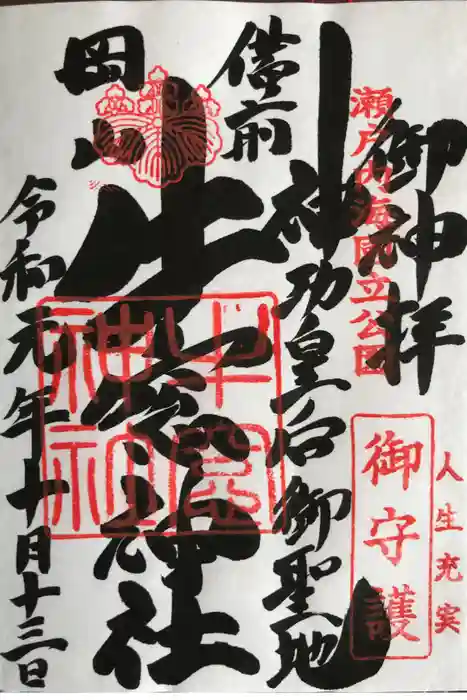 御神拝
瀬戸内海国立公園
人生充実
御守護
備前
神功皇后御聖地
岡山
牛窓神社
牛窓神社
令和元年十月十三日